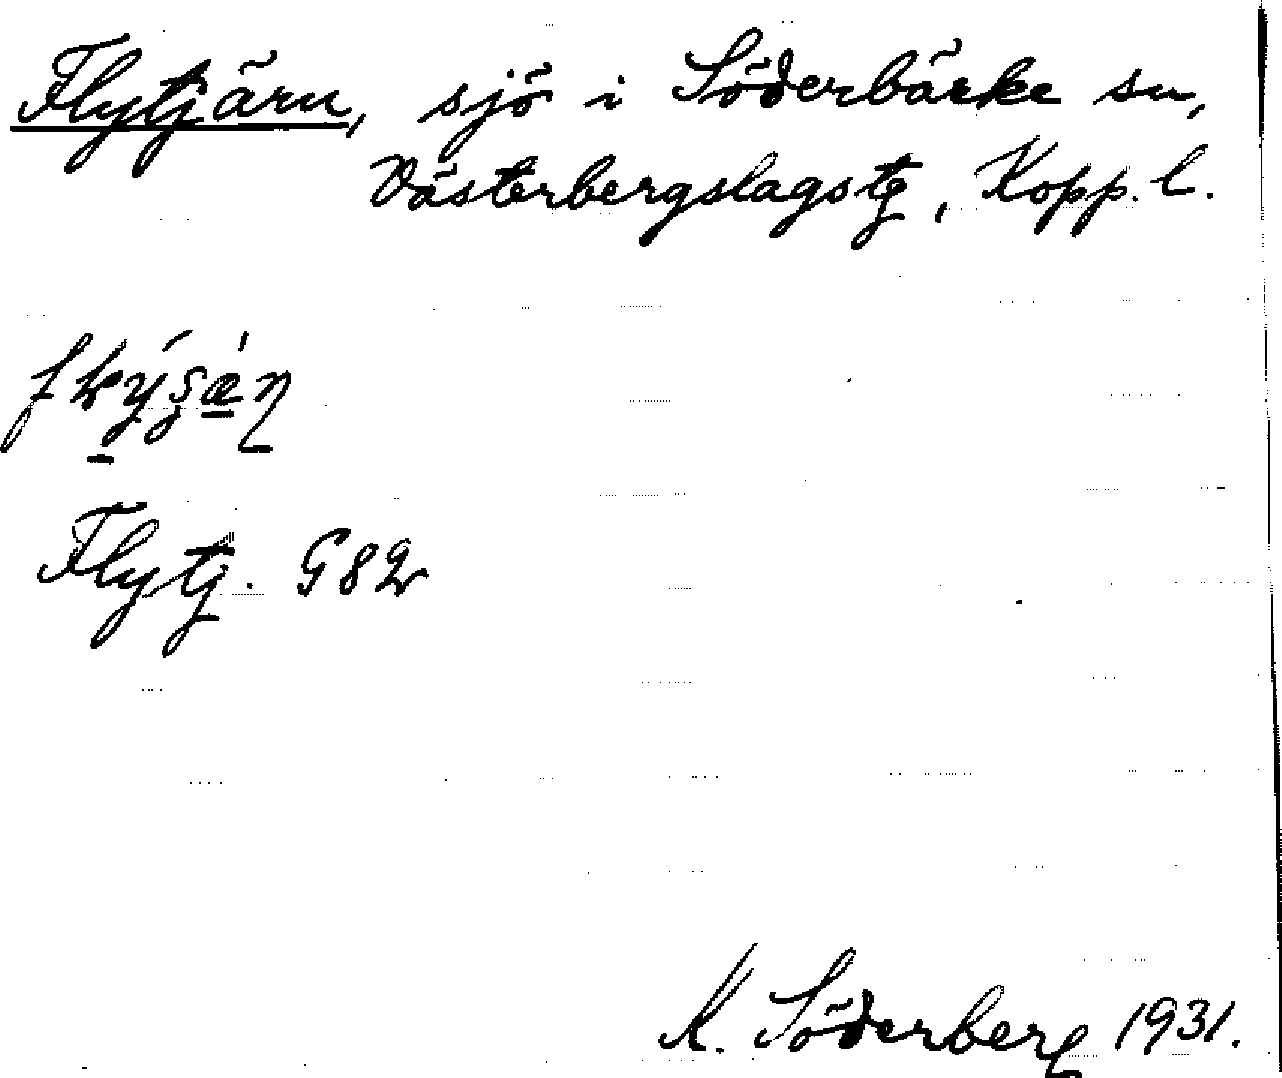 Flytjärn, sjö i Söderbärke sn,
Västerbergslags tg, Kopp. l.
Flytj. G82
K. Söderberg 1931.